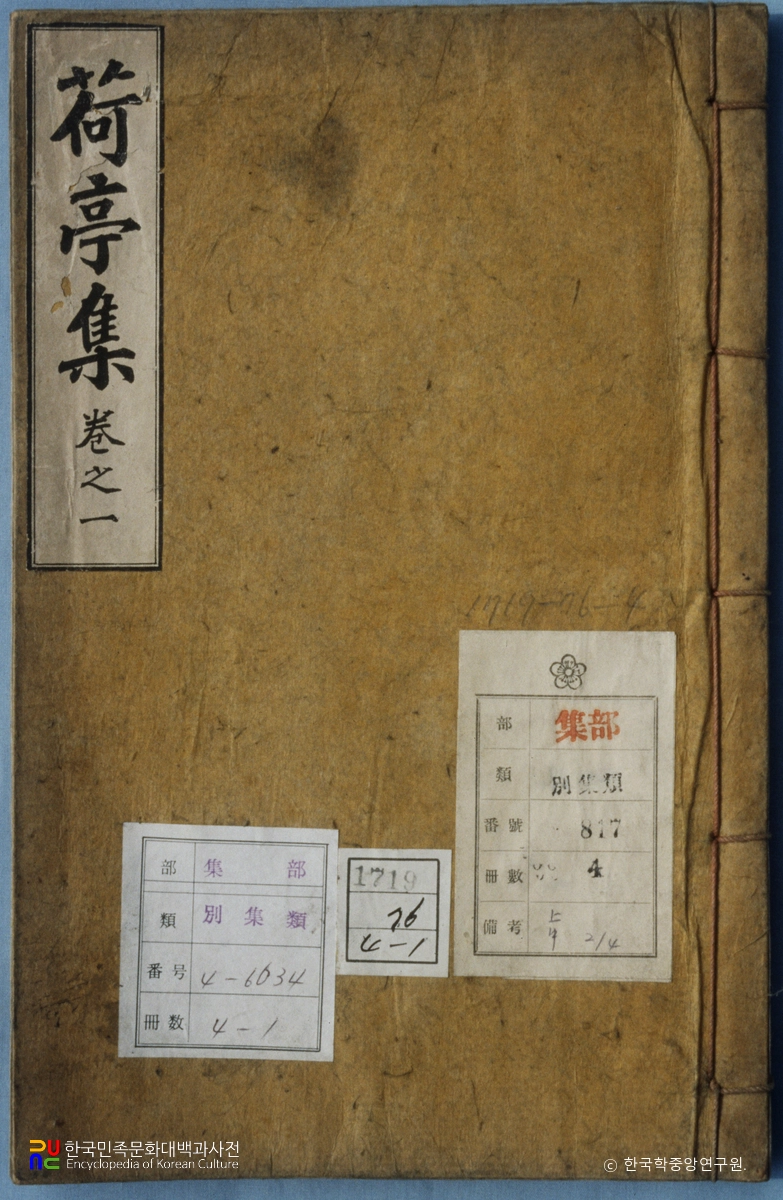 荷亭集 卷之一
部 集部
類 別集類
番號 817
冊數 4
備考 2/4
1719
26
4-1
部 集部
類 別集類
番号 4-6034
冊数 4-1
한국민족문화대백과사전
Encyclopedia of Korean Culture
ⓒ 한국학중앙연구원.